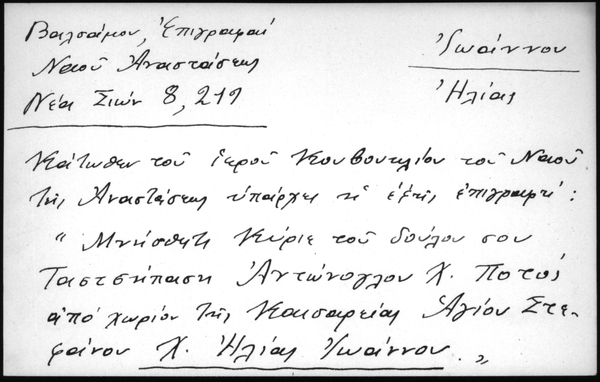 Βαλσάμου, Ἐπιγραφαί
Ναοῦ Ἀναστάσεως
Νέα Σιών 8, 211
Ἰωάννου
Ἠλίας
Κάτωθεν τοῦ ἱεροῦ Κουβουκλίου τοῦ Ναοῦ
τῆς Ἀναστάσεως ὑπάρχει ἡ ἑξῆς ἐπιγραφή:
" Μνήσθητι Κύριε τοῦ δούλου σου
Ταστσήπαση Ἀντώνογλου Χ. Ποτός
ἀπό χωρίον τῆς Καισαρείας Ἁγίου Στε-
φάνου Χ. Ἠλίας Ἰωάννου. "